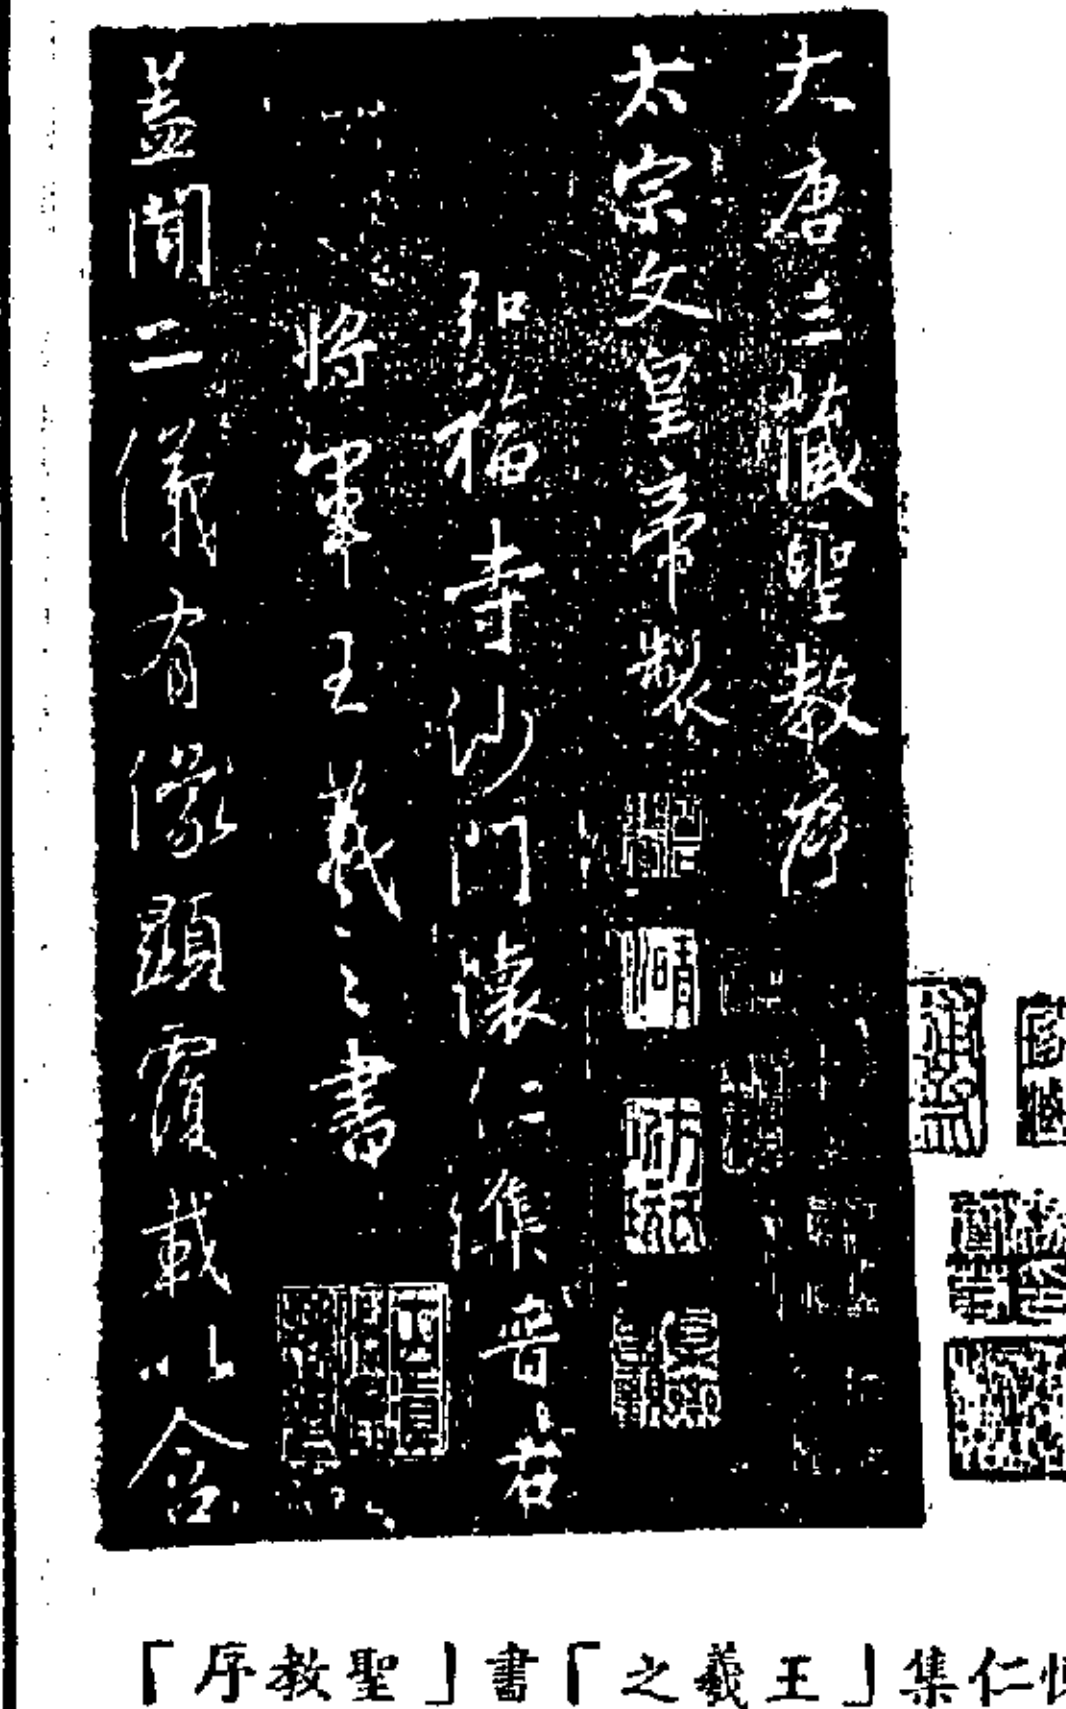 大唐三藏聖教序
太宗文皇帝製
弘福寺沙門懷仁集晉右
將軍王羲之書
蓋聞二儀有像顯覆載以含
仁集「王羲之」書「聖教序」